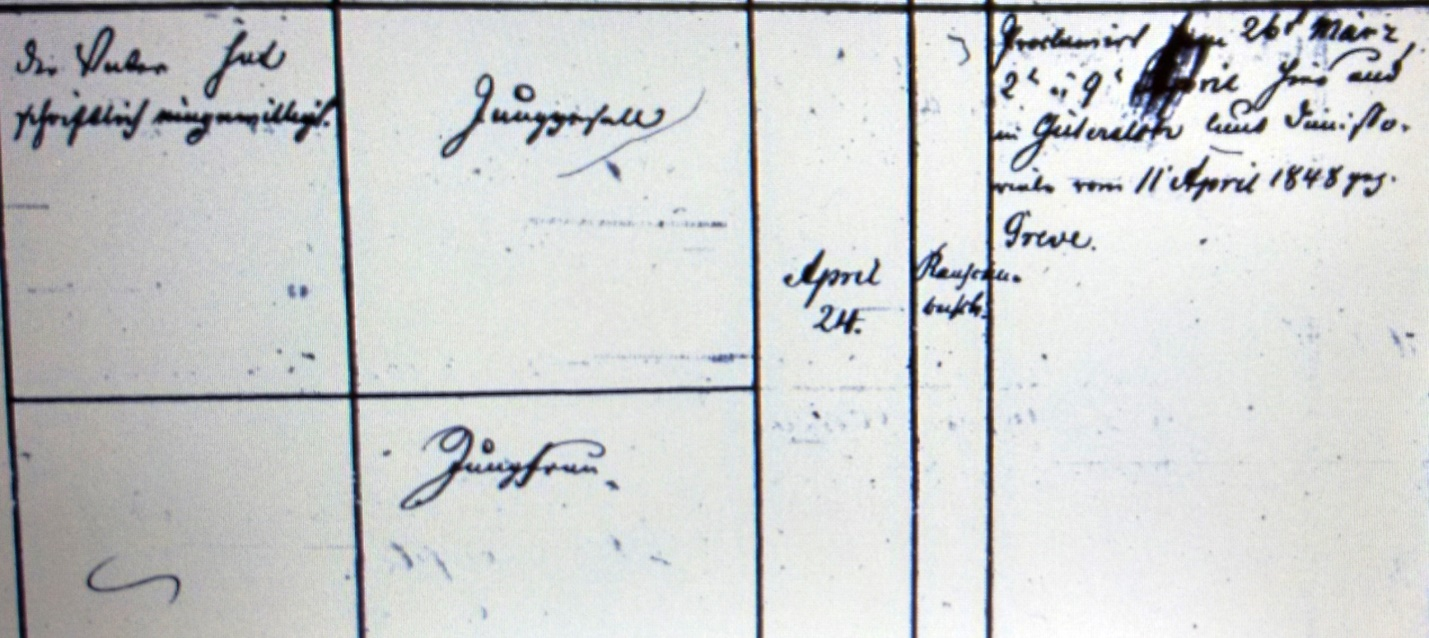 Der Vater hat
schriftlich eingewilligt.
Junggesell
Jungfrau
April
24.
Rauschen-
busch.
Proclamirt am 26t März,
2t u 9t April hier und
in Gütersloh laut Dimisso-
riale vom 11t April 1848 gez.
Greve.